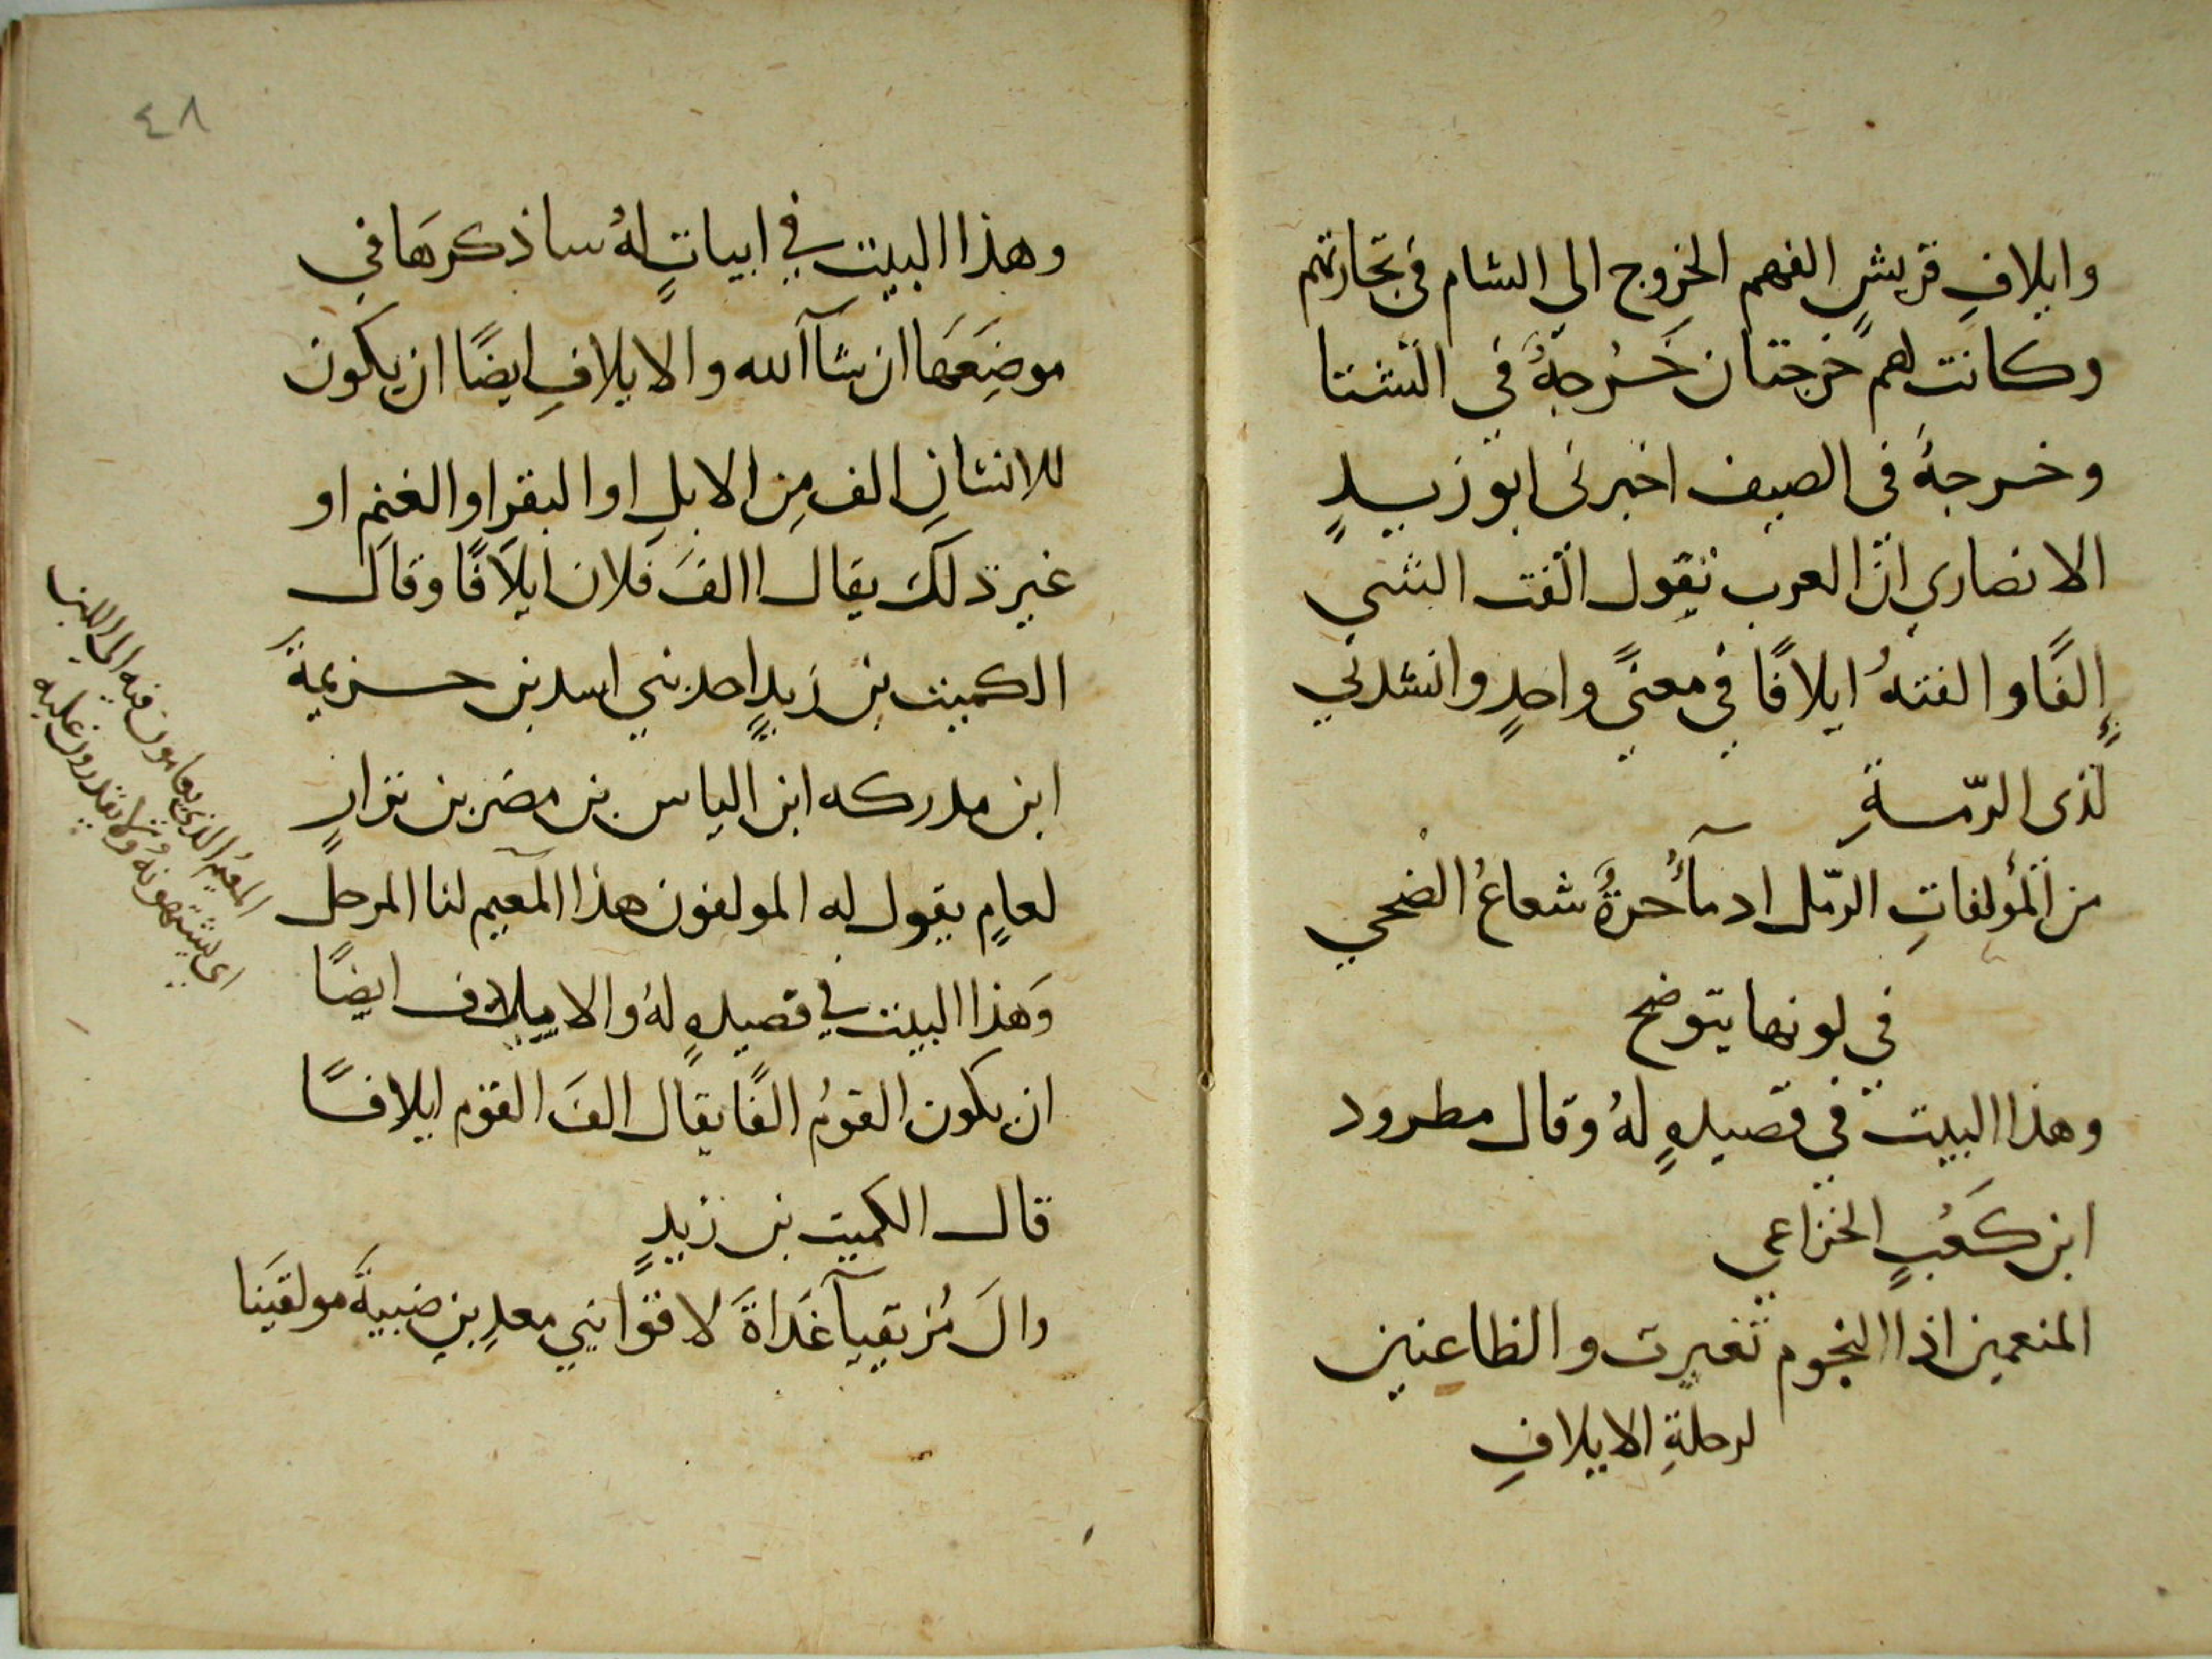 وايلافِ قريشٍ الفهم الخروج الى الشام فى تجارتهم
وكانت لهم خرجتان خَرْجةٌ في الشتا
وخرجةً فى الصيف اخبرنى ابو زيدٍ
الانصاري انّ العرب تقول الفت الشي
إلفًا والفتهُ ايلافًا في معنىً واحدٍ وانشدني
لذى الرّمةِ
من المؤلفاتِ الرّمل ادمآءُ حرةٌ شعاعُ الضحي
في لونها يتوضح
وهذا البيت في قصيدهٍ لهُ وقال مطرود
ابن كَعْبٍ الخزاعي
المنعمين اذا النجوم تغيرت والظاعنين
لرحلةِ الايلافِ
٤٨
وهذا البيت في ابياتٍ لهُ ساذكرهَا في
موضِعَهَا ان شآ الله والايلافِ ايضًا ان يكون
للانسانِ الف مِن الابلِ او البقرِ او الغنمِ او
غير ذلك يقال االفَ فلان ايلاَفًا وقال
الكميت بن زيدٍ احد بني اسد بن خزيمةَ
ابن مدركه ابن الياس بن مضر بن نزارٍ
لعامٍ يقول له المولفون هذا المعيم لنا المرحل
وَهذا البيت في قصيدهٍ لهُ والايلاف ايضًا
ان يكون القومُ الفًا يقال الفَ القوم ايلافًا
قال الكميت بن زيدٍ
والَ مُزيقيآ غَداةَ لاقوا بني معدِ بنِ ضبيةَ مولقينَا
المعيمُ الذي يعامون فيه الى اللبن
اى يشتهونهُ ولا يقدرون عليه